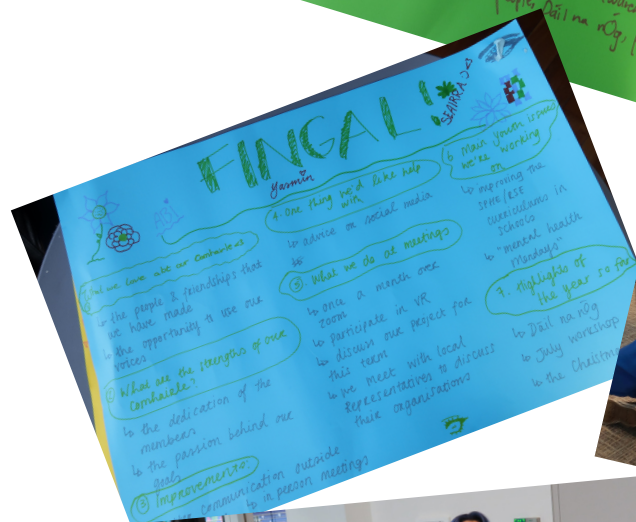 peoples Dáil na nÓg,
FINGAL!
SEARRA
Yasmin
we love abt our comhairles
↳ the people & friendships that
we have made
↳ the opportunity to use our
voices
② What are the strengths of our
comhairle?
↳ the dedication of the
members
↳ the passion behind our
goals
③ Improvements:
communication outside
↳ in person meetings
4. One thing we'd like help
with
↳ advice on social media
↳
⑤ What we do at meetings
↳ once a month over
zoom
↳ participate in VR
↳ discuss our project for
this term
↳ we meet with local
Representatives to discuss
their organisations
6 Main youth issues
we're working
on
↳ improving the
SPHE/RSE
curriculums in
schools
↳ "mental health
Mondays"
7. Highlights of
the year so far
↳ Dáil na nÓg
↳ July workshop
↳ the Christm